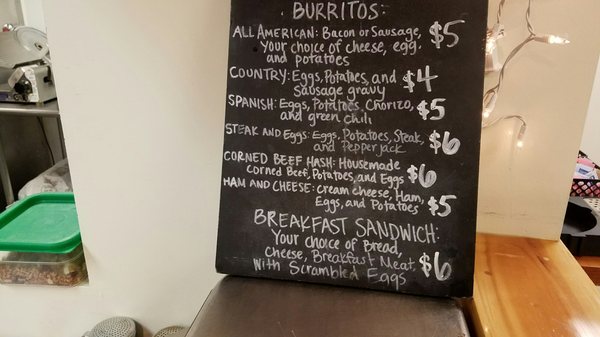 BURRITOS:
ALL AMERICAN: Bacon or Sausage, $5
your choice of cheese, egg,
and potatoes
COUNTRY: Eggs, Potatoes, and $4
sausage gravy
SPANISH: Eggs, Potatoes, Chorizo, $5
and green chili
STEAK AND EGGS: Eggs, Potatoes, Steak, $6
and Pepperjack
CORNED BEEF HASH: Housemade $6
corned Beef, Potatoes, and Eggs
HAM AND CHEESE: cream cheese, Ham, $5
Eggs, and Potatoes
BREAKFAST SANDWICH:
Your choice of Bread,
Cheese, Breakfast Meat, $6
With Scrambled Eggs